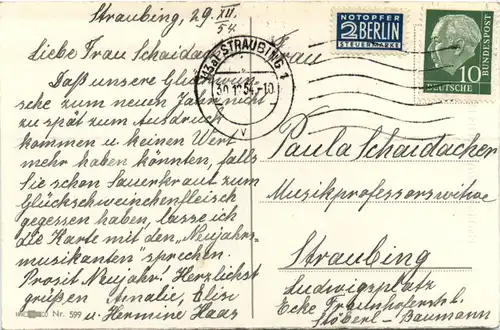 Straubing, 29. XII. 54.
Liebe Frau Schaidacher!
Daß unsere Glückwün-
sche zum neuen Jahre nicht
zu spät zum Ausdruck
kommen u. keinen Wert
mehr haben könnten, falls
Sie schon Sauerkraut zum
Glückschweinchenfleisch
gegessen haben, lasse ich
die Karte mit den „Neujahrs-
musikanten" sprechen.
Prosit Neujahr! Herzlichst
grüßen Amalie, Elise
u. Hermine Haas
Nr. 599
STRAUBING 1
30.12.54.-10
V
NOTOPFER
2 BERLIN
STEUERMARKE
10
DEUTSCHE
BUNDESPOST
Frau
Paula Schaidacher
Musikprofessorswitwe
Straubing
Ludwigsplatz
Ecke Fraunhoferstr.
Stöberl-Baumann